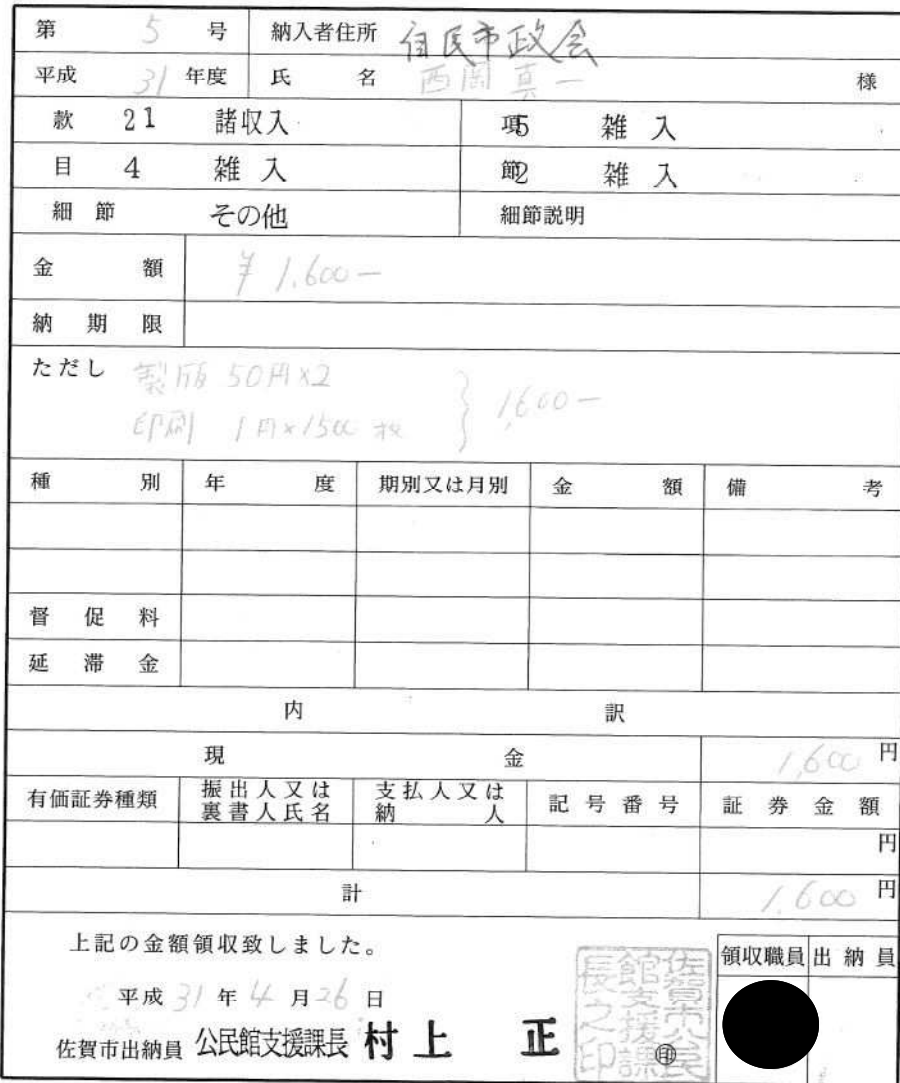 第 5 号 納入者住所 自民市政会
平成 31 年度 氏 名 西岡 真一 様
款 21 諸収入 項5 雑入
目 4 雑入 節2 雑入
細節 その他 細節説明
金額 ¥1,600-
納期限
ただし 製版 50円×2
印刷 1円×1500枚 } 1,600-
種別 年度 期別又は月別 金額 備考
督促料
延滞金
内訳
現金 1,600円
有価証券種類 振出人又は裏書人氏名 支払人又は納人 記号番号 証券金額
円
計 1,600円
上記の金額領収致しました。
領収職員 出納員
平成 31 年 4 月 26 日
佐賀市出納員 公民館支援課長 村上 正 ㊞
佐賀市公民館支援課長之印